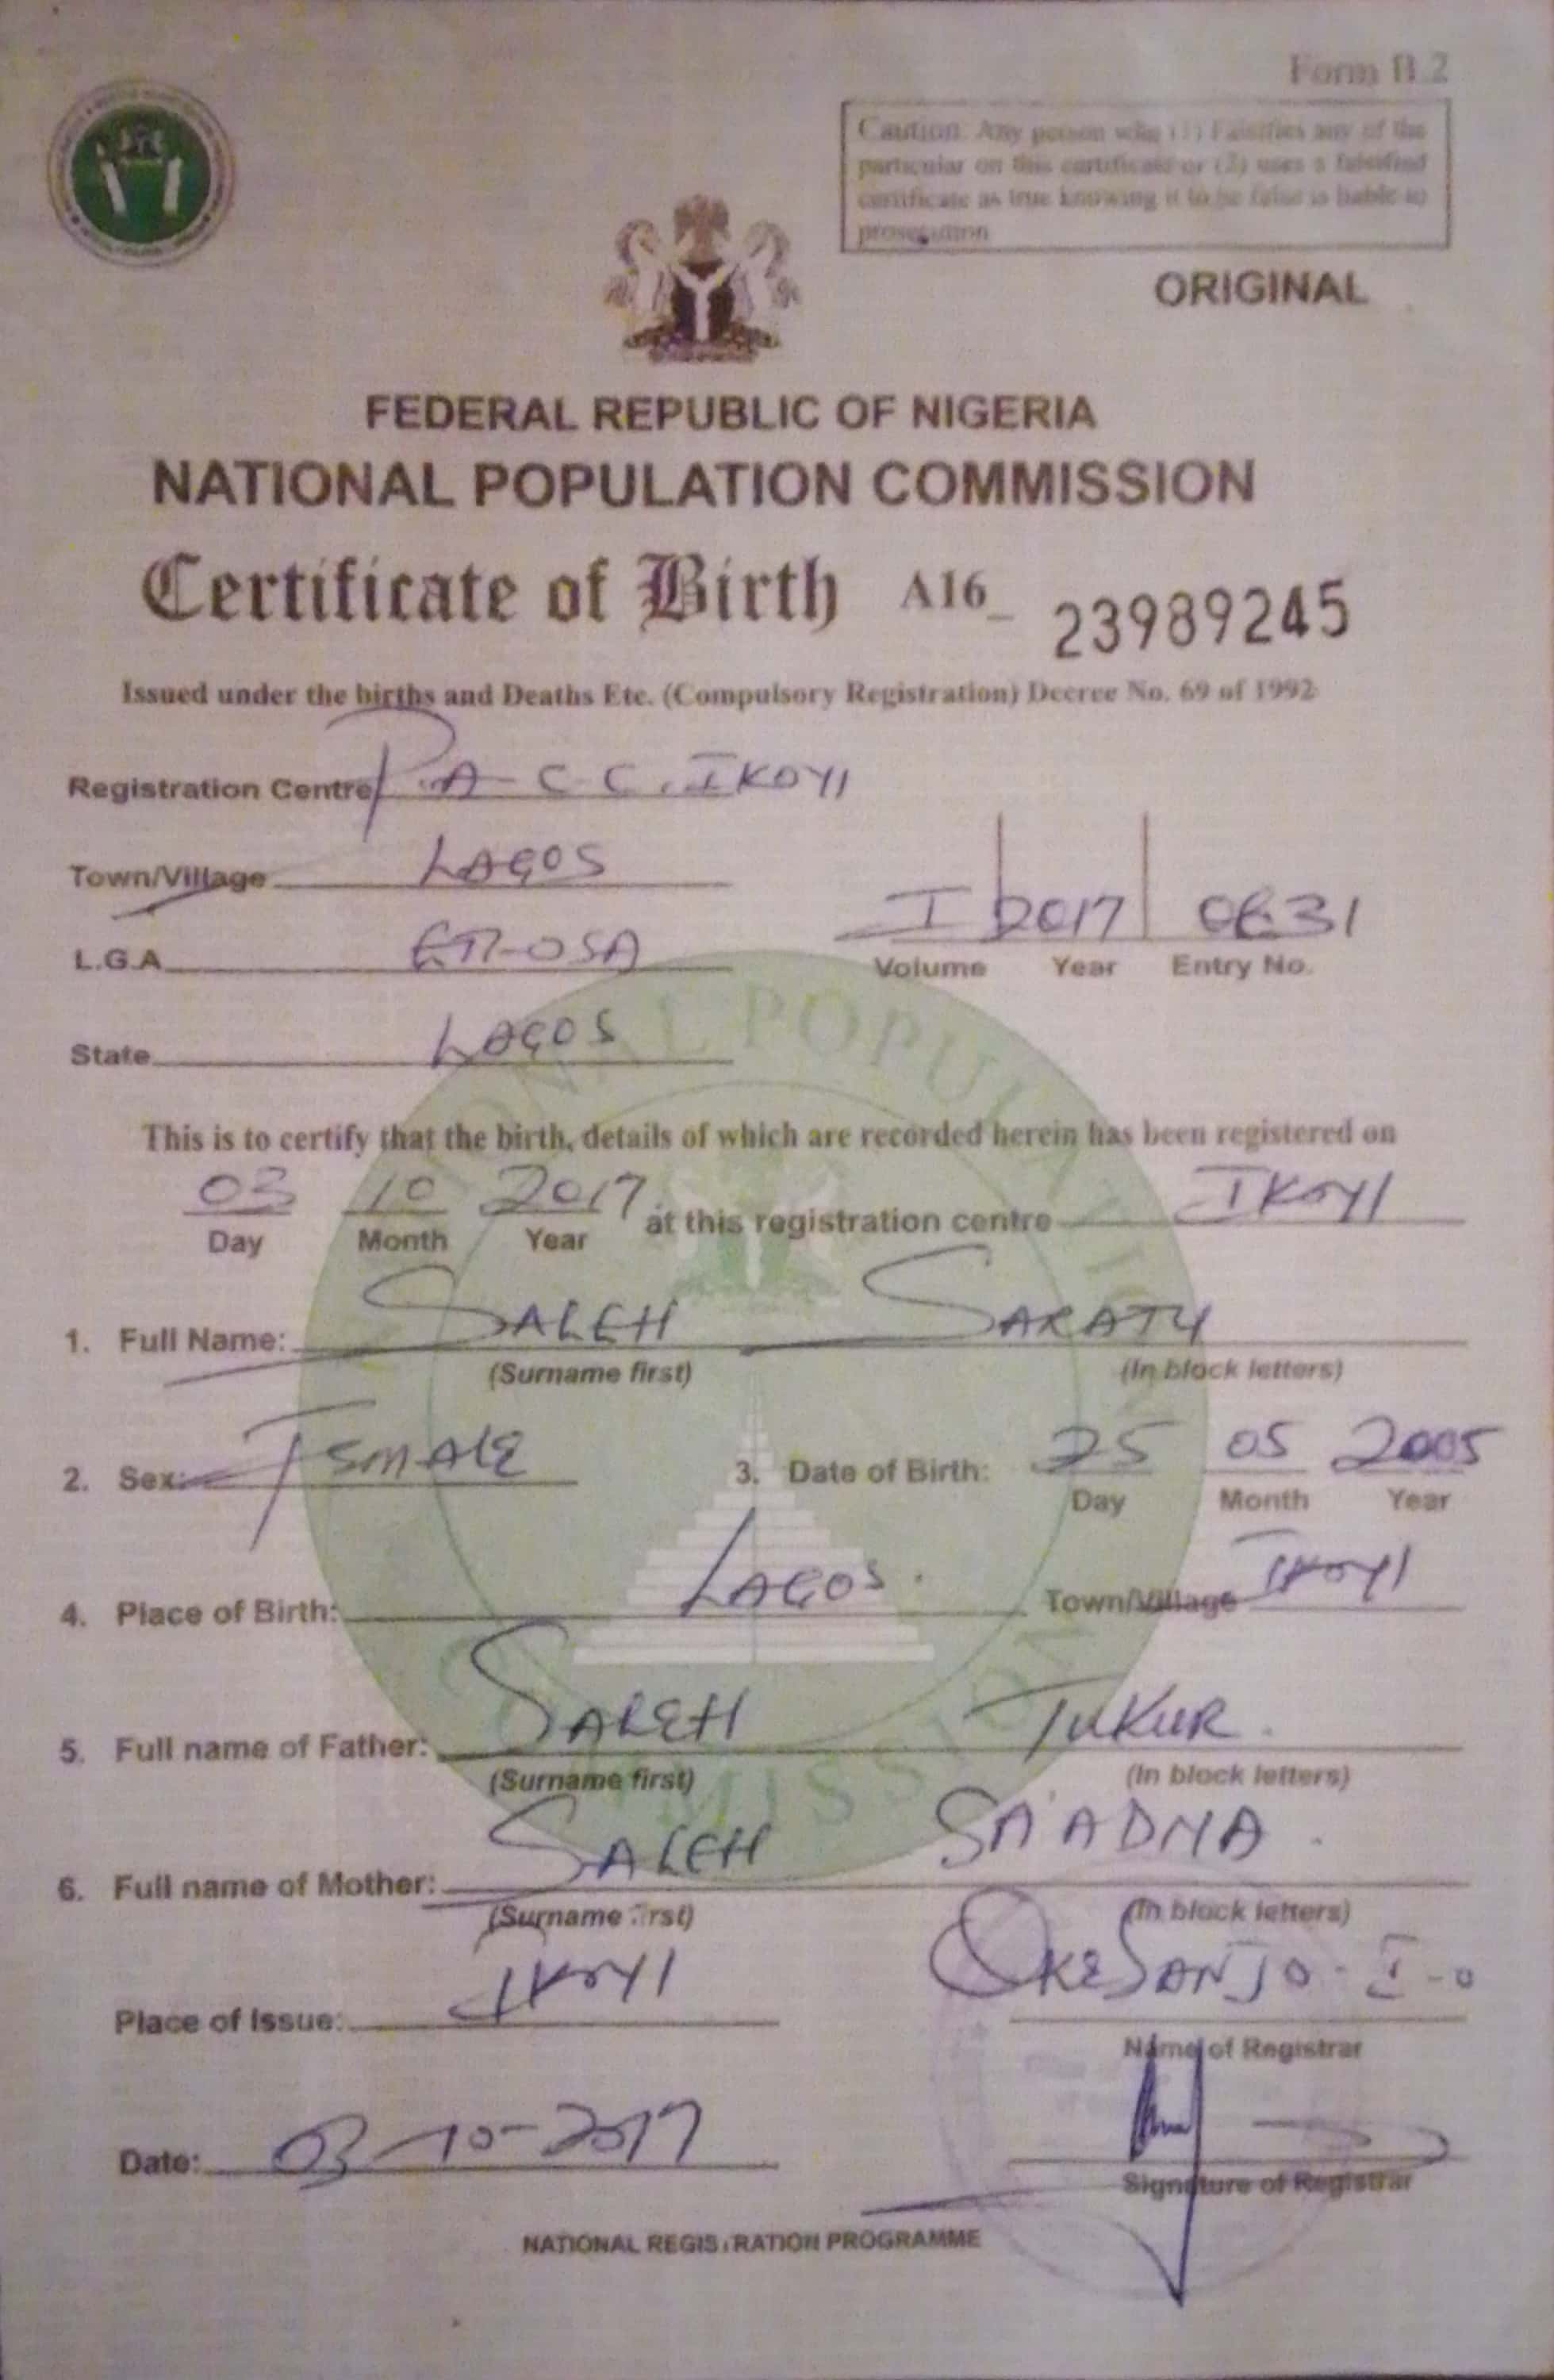 Form B.2
Caution: Any person who (1) Falsifies any of the
particular on this certificate or (2) uses a falsified
certificate as true knowing it to be false is liable to
prosecution
ORIGINAL
FEDERAL REPUBLIC OF NIGERIA
NATIONAL POPULATION COMMISSION
Certificate of Birth A16_ 23989245
Issued under the births and Deaths Etc. (Compulsory Registration) Decree No. 69 of 1992
Registration Centre P.A-C C. IKOYI
Town/Village LAGOS
L.G.A ETI-OSA
I 2017 0631
Volume Year Entry No.
State LAGOS
This is to certify that the birth, details of which are recorded herein has been registered on
03 10 2017 at this registration centre IKOYI
Day Month Year
1. Full Name: SALEH SARATU
(Surname first) (In block letters)
2. Sex: FEMALE 3. Date of Birth: 25 05 2005
Day Month Year
4. Place of Birth: LAGOS. Town/Village IKOYI
5. Full name of Father: SALEH TUKUR.
(Surname first) (In block letters)
6. Full name of Mother: SALEH SA'ADNA.
(Surname first) (In block letters)
Place of Issue: IKOYI OKESANJO-I-O
Name of Registrar
Date: 03-10-2017
Signature of Registrar
NATIONAL REGISTRATION PROGRAMME
NATIONAL POPULATION COMMISSION